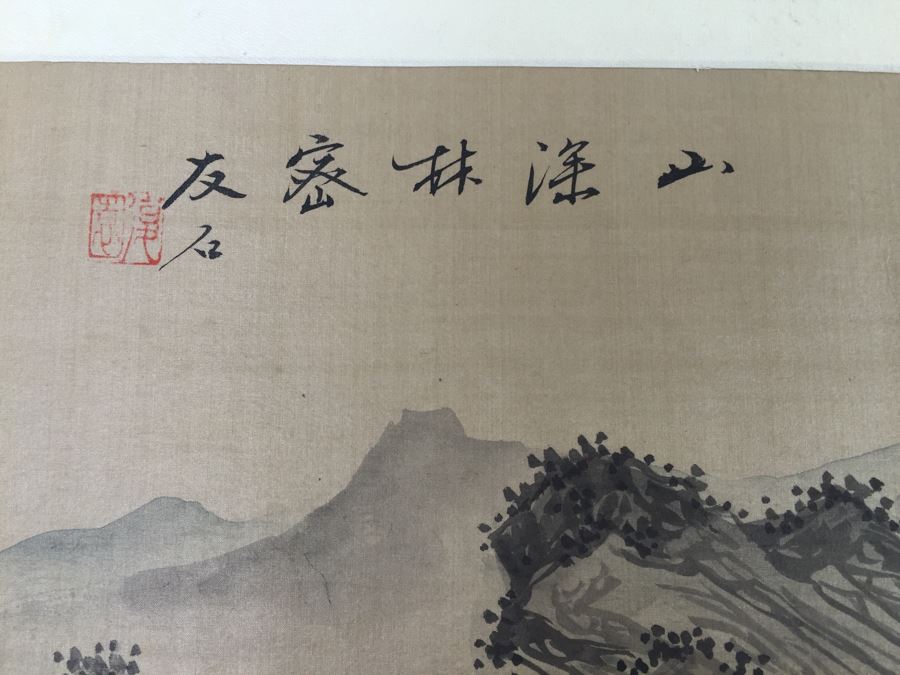 山深林密
友石